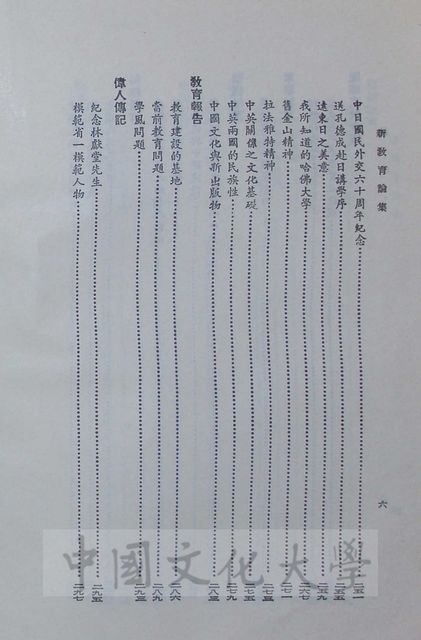 新教育論集
六
中日國民外交六十周年紀念……二五一
送孔德成赴日講學序……二五五
遠東日之美意……二五九
我所知道的哈佛大學……二六七
舊金山精神……二七一
拉法雅特精神……二七三
中英關係之文化基礎……二七五
中英兩國的民族性……二七九
中國文化與新出版物……二八三
教育報告
教育建設的基地……二八六
當前教育問題……二八九
學風問題……二九三
偉人傳記
紀念林獻堂先生……二九五
模範省一模範人物……二九七
中國文化大學